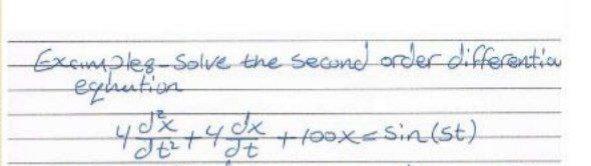 Examples-Solve the second order differentia
equation
4 d²x/dt² + 4 dx/dt + 100x = Sin(5t)